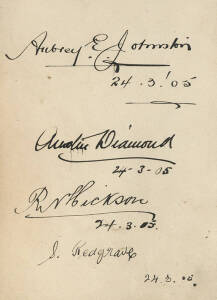 Aubrey E. Johnston
24.3.'05
Austin Diamond
24-3-05
R N Hickson
24.3.05.
J. Redgrave
24.3.05.